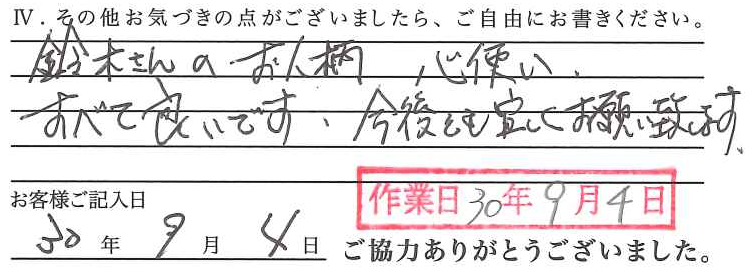 Ⅳ．その他お気づきの点がございましたら、ご自由にお書きください。
鈴木さんの お人柄 心使い、
すべて良いです、今後とも宜しくお願い致します、
お客様ご記入日
作業日30年9月4日
30年9月4日
ご協力ありがとうございました。